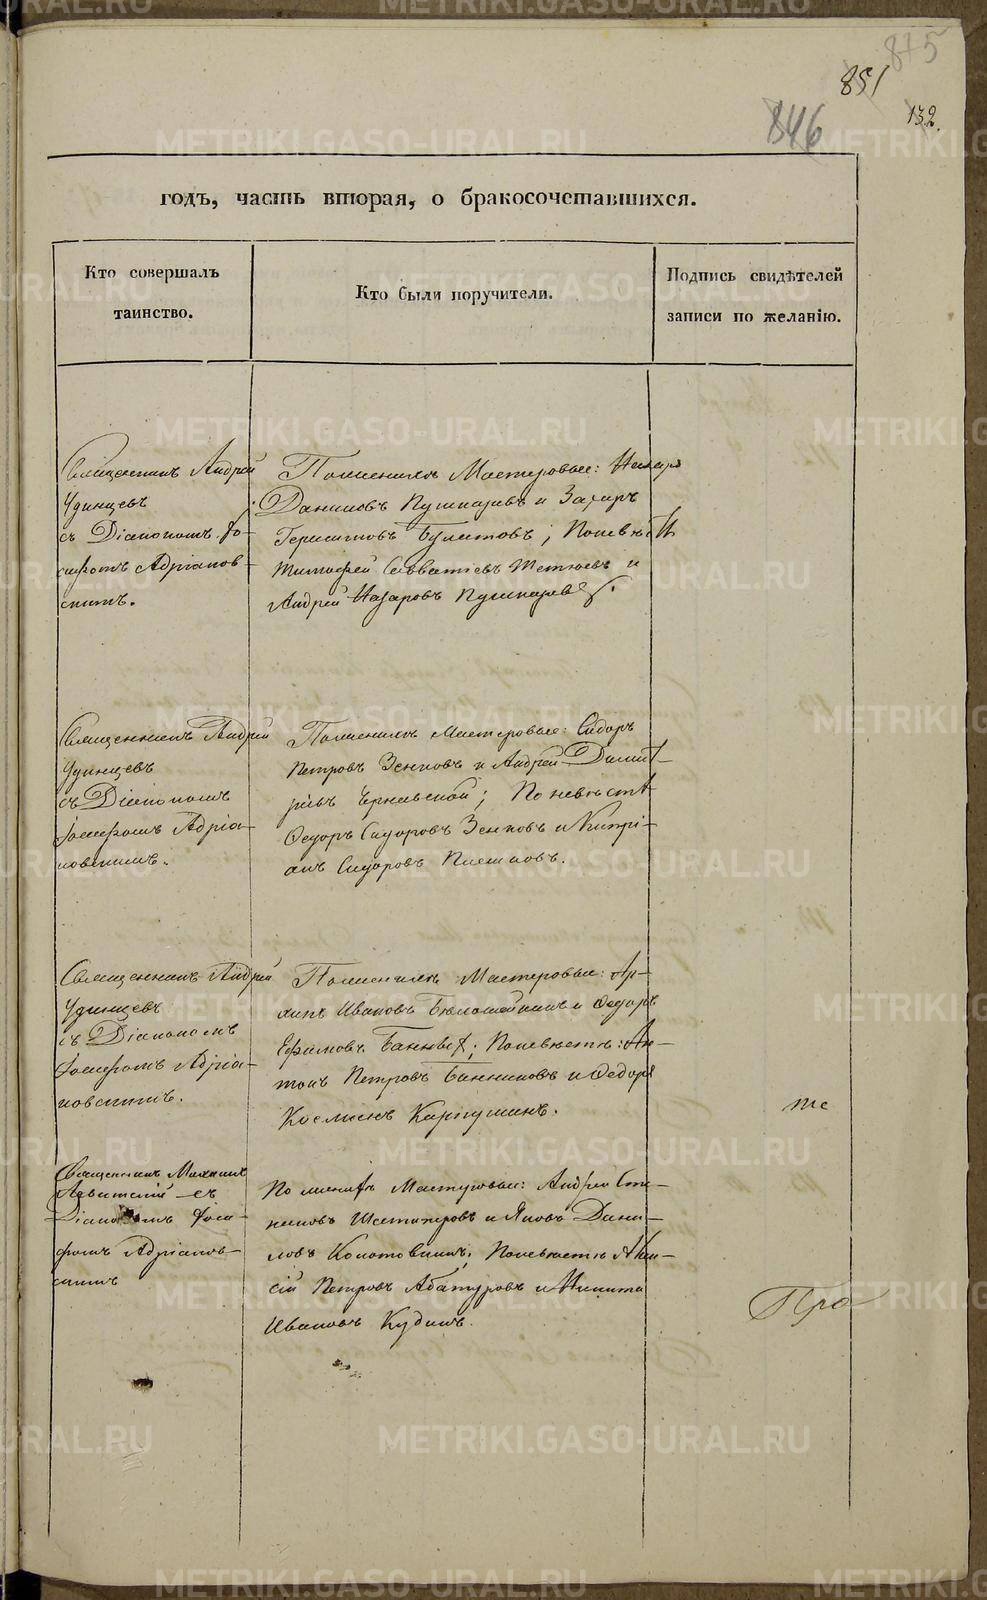 815
851
846
132.
годъ, часть вторая, о бракосочетавшихся.
Кто совершалъ
таинство.
Кто были поручители.
Подпись свидѣтелей
записи по желанію.
Священникъ Андрей
Удинцевъ
съ Діакономъ Іо-
сифомъ Адріанов-
скимъ.
По женихѣ Мастеровые: Назаръ
Даниловъ Пушкаревъ и Захаръ
Герасимовъ Булатовъ; По невѣстѣ
Тимофей Савватіевъ и
Андрей Назаровъ Пушкаревъ.
Священникъ Андрей
Удинцевъ
съ Діакономъ
Іосифомъ Адріа-
новскимъ.
По женихѣ Мастеровые: Сидоръ
Петровъ Зенковъ и Андрей Димит-
ріевъ Чернавской; По невѣстѣ
Федоръ Сидоровъ Зенковъ и Кипрі-
анъ Сидоровъ
Священникъ Андрей
Удинцевъ
съ Діакономъ
Іосифомъ Адріа-
новскимъ.
По женихѣ Мастеровые: Ар-
хипъ Ивановъ и Федоръ
Ефимовъ По невѣстѣ: Ан-
тонъ Петровъ Банниковъ и Федоръ
Косминъ Карпушинъ.
Священникъ Михаилъ
съ
Діакономъ Іоси-
фомъ Адріанов-
скимъ
По женихѣ Мастеровые: Андрей
и Яковъ Дани-
ловъ По невѣстѣ
Петровъ Абатуровъ и Никита
Ивановъ Кудинъ.
те
Про
METRIKI.GASO-URAL.RU